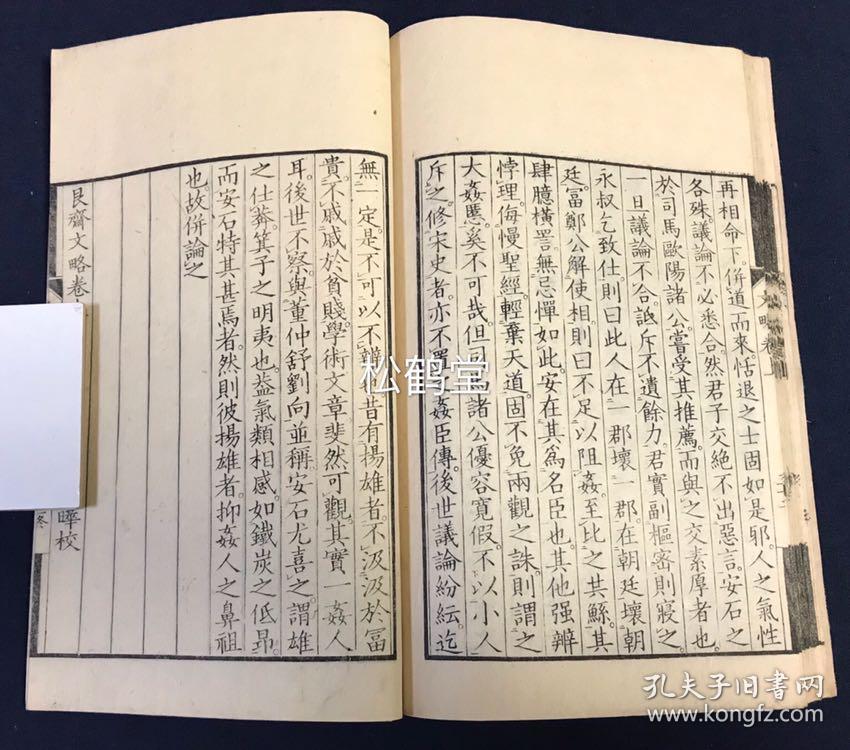 再相命下。併道而來。恬退之士固如是邪。人之氣性
各殊。議論不必悉合。然君子交絶不出惡言。安石之
於司馬歐陽諸公。嘗受其推薦。而與之交素厚者也。
一旦議論不合。詆斥不遺餘力。君實副樞密則寢之。
永叔乞致仕則曰此人在一郡壞一郡。在朝廷壞朝
廷。富鄭公解使相。則曰不足以阻姦。至比之共鯀。其
肆臆橫詈。無忌憚如此。安在其爲名臣也。其他强辨
悖理。侮慢聖經。輕棄天道。固不免兩觀之誅。則謂之
大姦慝。奚不可哉。但司馬諸公優容寬假。不以小人
斥之。修宋史者。亦不置姦臣傳。後世議論紛紜。迄
無一定。是不可以不辨也。昔有揚雄者。不汲汲於富
貴。不戚戚於貧賤。學術文章斐然可觀。其實一姦人
耳。後世不察。與董仲舒劉向並稱。安石尤喜之。謂雄
之仕莽。箕子之明夷也。蓋氣類相感。如鐵炭之低昂。
而安石特其甚焉者。然則彼揚雄者。抑姦人之鼻祖
也。故併論之
艮齋文略卷
曄校
文略卷
終
松鹤堂
孔夫子旧书网
www.kongfz.com